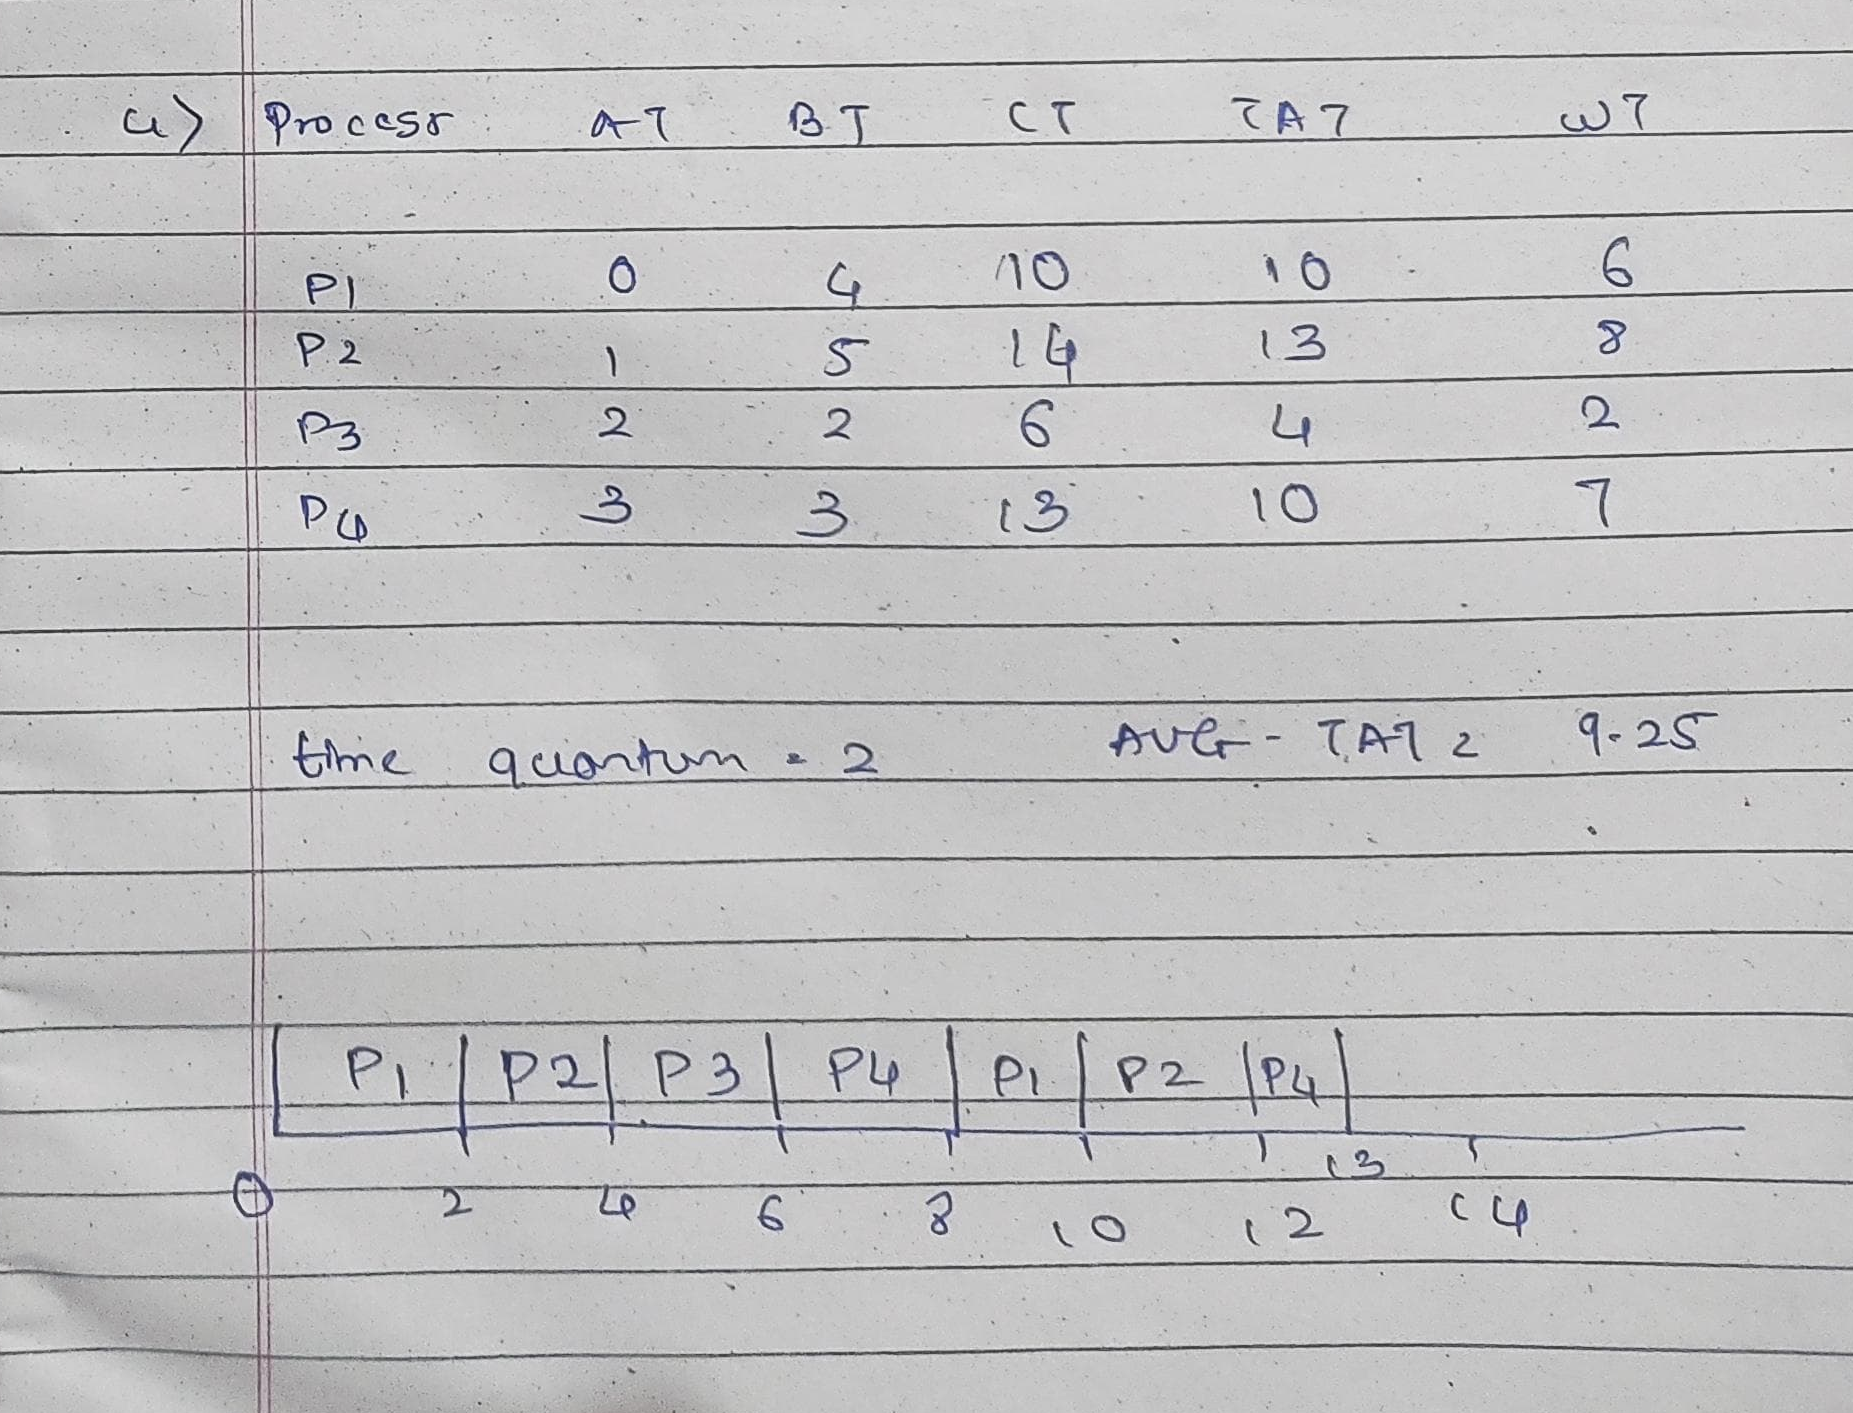 4) Process AT BT CT TAT WT
P1 0 4 10 10 6
P2 1 5 14 13 8
P3 2 2 6 4 2
P4 3 3 13 10 7
time quantum = 2 AVG - TAT = 9.25
P1 P2 P3 P4 P1 P2 P4
0 2 4 6 8 10 12 13 14